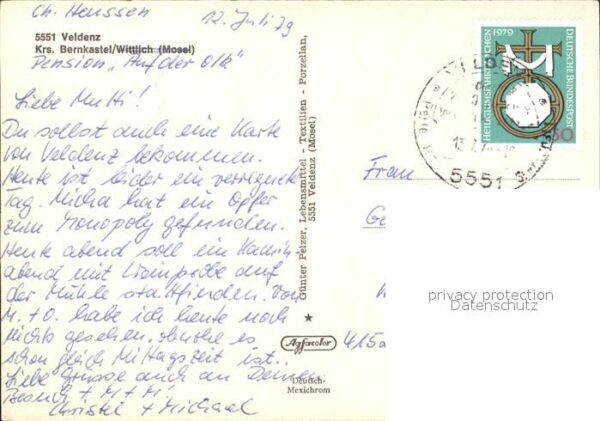 Ch. Heussen 12. Juli 79
5551 Veldenz
Krs. Bernkastel/Wittlich (Mosel)
Pension "Auf der Olk"
Liebe Mutti!
Du sollst auch eine Karte
von Veldenz bekommen.
Heute ist leider ein verregneter
Tag. Micha hat ein Opfer
zum Monopoly gefunden.
Heute abend soll ein Kamin-
abend mit Weinprobe auf
der Mühle stattfinden. Von
M. + O. habe ich heute noch
nichts gesehen, obwohl es
schon gleich Mittagszeit ist.
Liebe Grüsse auch an Deinen
Besuch + M + M.
Christel + Michael
Günter Pelzer, Lebensmittel - Textilien - Porzellan,
5551 Veldenz (Mosel)
Agfacolor
Deutsch-
Mexichrom
1979
HEILIGTUMSFAHRT AACHEN
DEUTSCHE BUNDESPOST
50
5551
Frau
415
privacy protection
Datenschutz